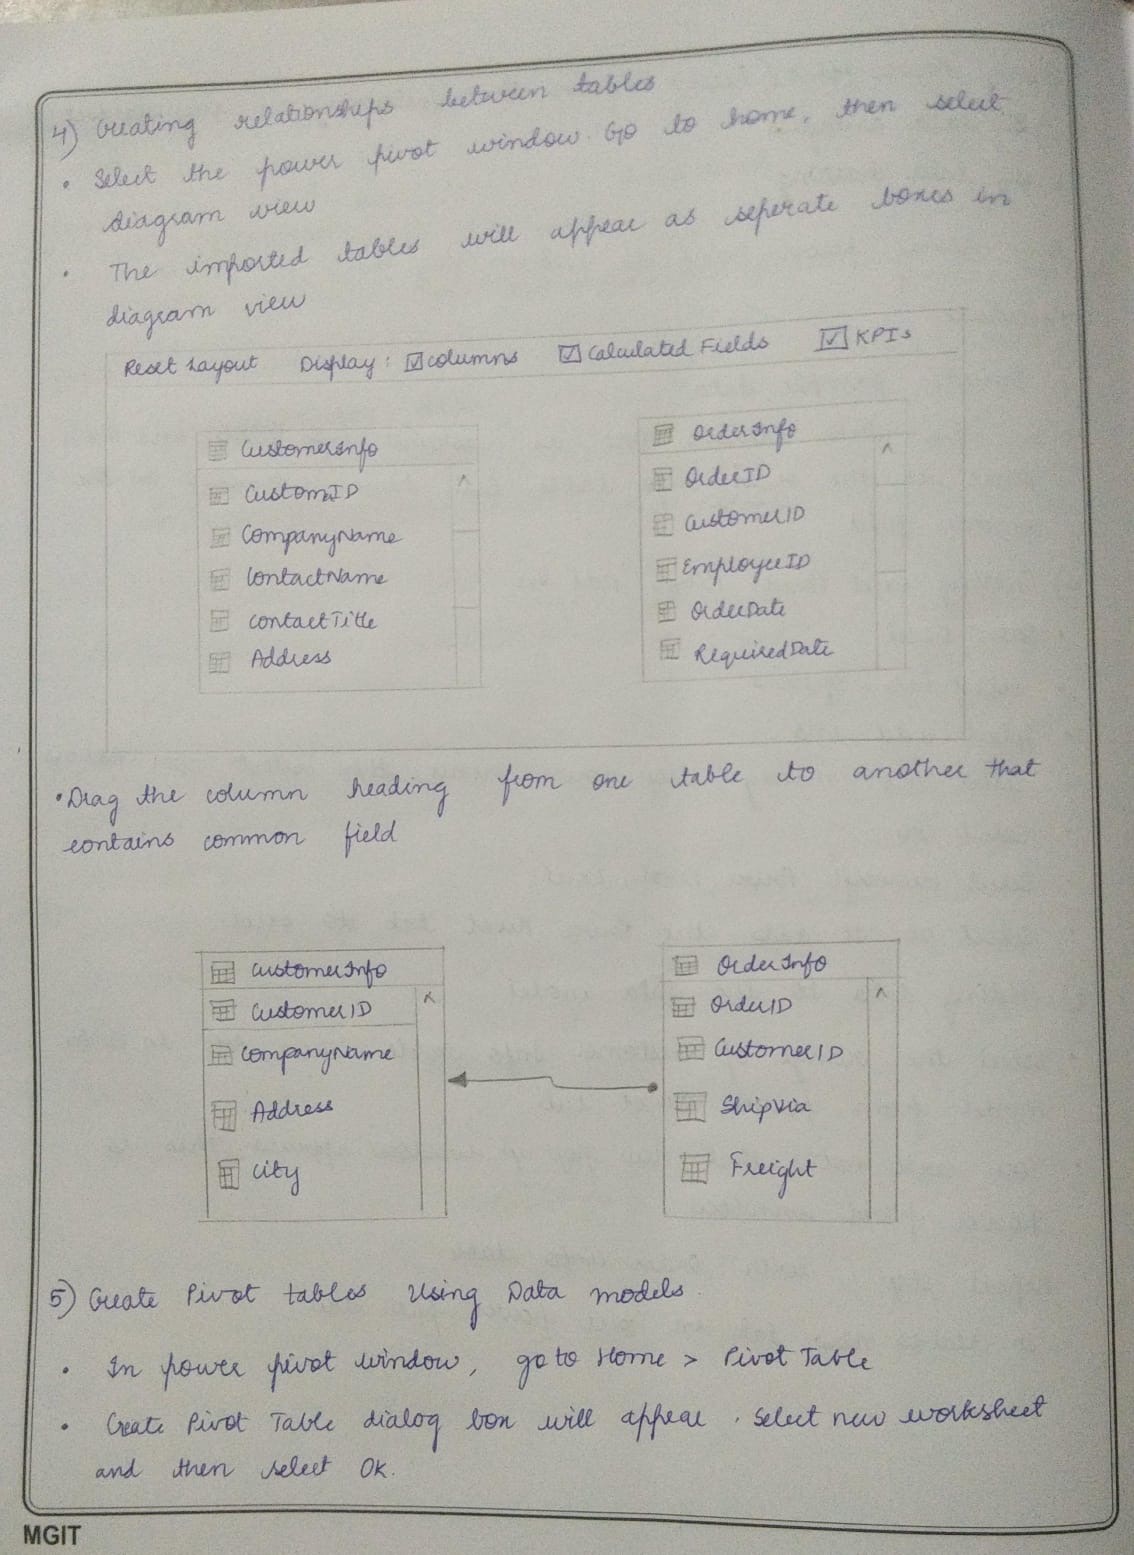 4) Creating relationships between tables
• Select the power pivot window. Go to home, then select
diagram view
• The imported tables will appear as seperate boxes in
diagram view
Reset Layout Display : ☑ columns ☑ Calculated Fields ☑ KPIs
CustomerInfo
CustomID
CompanyName
ContactName
contactTitle
Address
OrderInfo
OrderID
CustomerID
EmployeeID
OrderDate
RequiredDate
• Drag the column heading from one table to another that
contains common field
CustomerInfo
CustomerID
CompanyName
Address
City
OrderInfo
OrderID
CustomerID
ShipVia
Freight
5) Create Pivot tables Using Data models.
• In power pivot window, go to Home > Pivot Table
• Create Pivot Table dialog box will appear. Select new worksheet
and then select OK.
MGIT